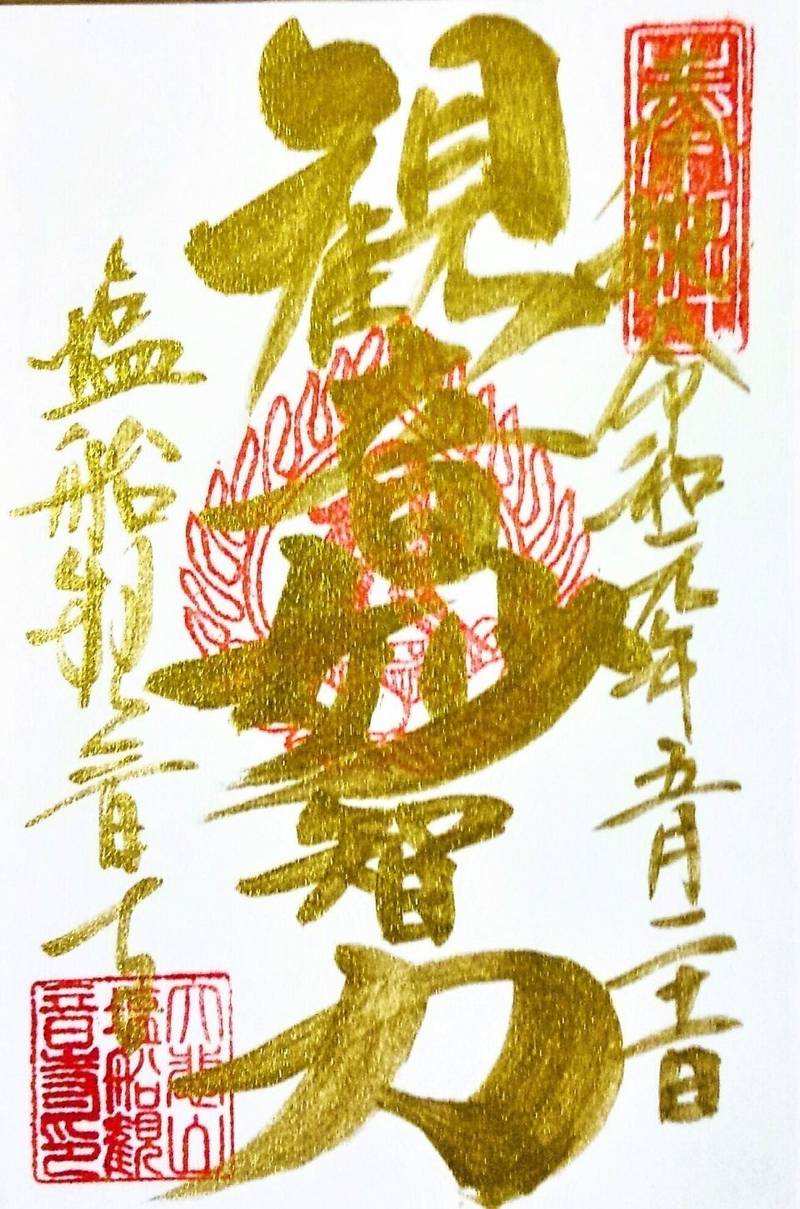 奉拝 令和元年五月二十一日
観音妙智力
塩船観音寺
大悲山
塩船観
音寺印